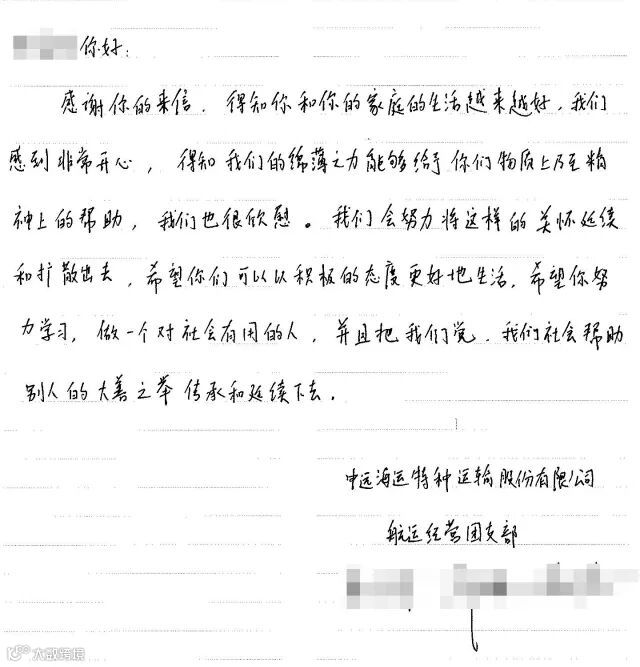 你好：
感谢你的来信．得知你和你的家庭的生活越来越好，我们
感到非常开心，得知我们的绵薄之力能够给予你们物质上乃至精
神上的帮助，我们也很欣慰。我们会努力将这样的关怀延续
和扩散出去，希望你们可以以积极的态度更好地生活，希望你努
力学习，做一个对社会有用的人，并且把我们党、我们社会帮助
别人的大善之举传承和延续下去．
中远海运特种运输股份有限公司
航运经营团支部
大数跨境